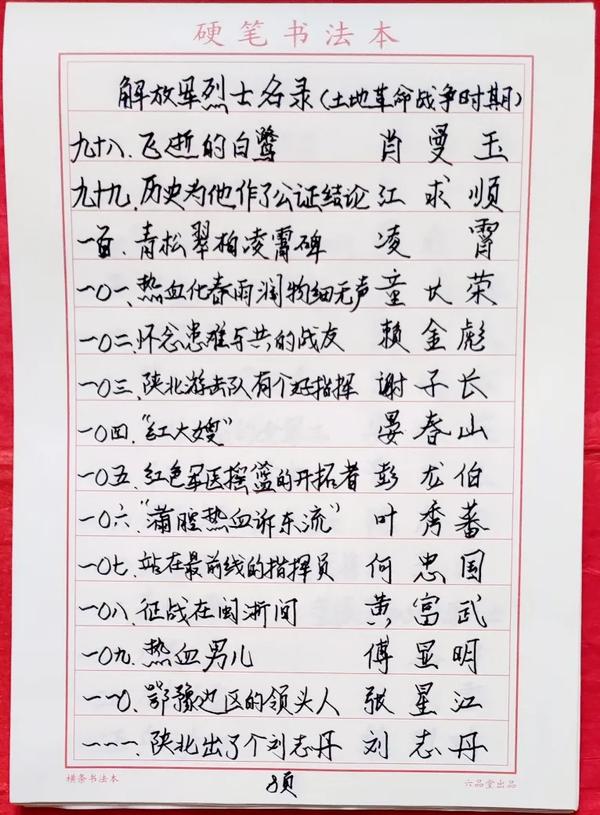 硬笔书法本
解放军烈士名录(土地革命战争时期)
九十八、飞逝的白鹭 肖曼玉
九十九、历史为他作了公证结论 江求顺
一百、青松翠柏凌霄碑 凌霄
一〇一、热血化春雨润物细无声 童长荣
一〇二、怀念患难与共的战友 赖金彪
一〇三、陕北游击队有个好指挥 谢子长
一〇四、“红大嫂” 晏春山
一〇五、红色军医摇篮的开拓者 彭龙伯
一〇六、“满腔热血诉东流” 叶秀蕃
一〇七、站在最前线的指挥员 何忠国
一〇八、征战在闽浙间 黄富武
一〇九、热血男儿 傅显明
一一〇、鄂豫边区的领头人 张星江
一一一、陕北出了个刘志丹 刘志丹
横条书法本 8页 六品堂出品